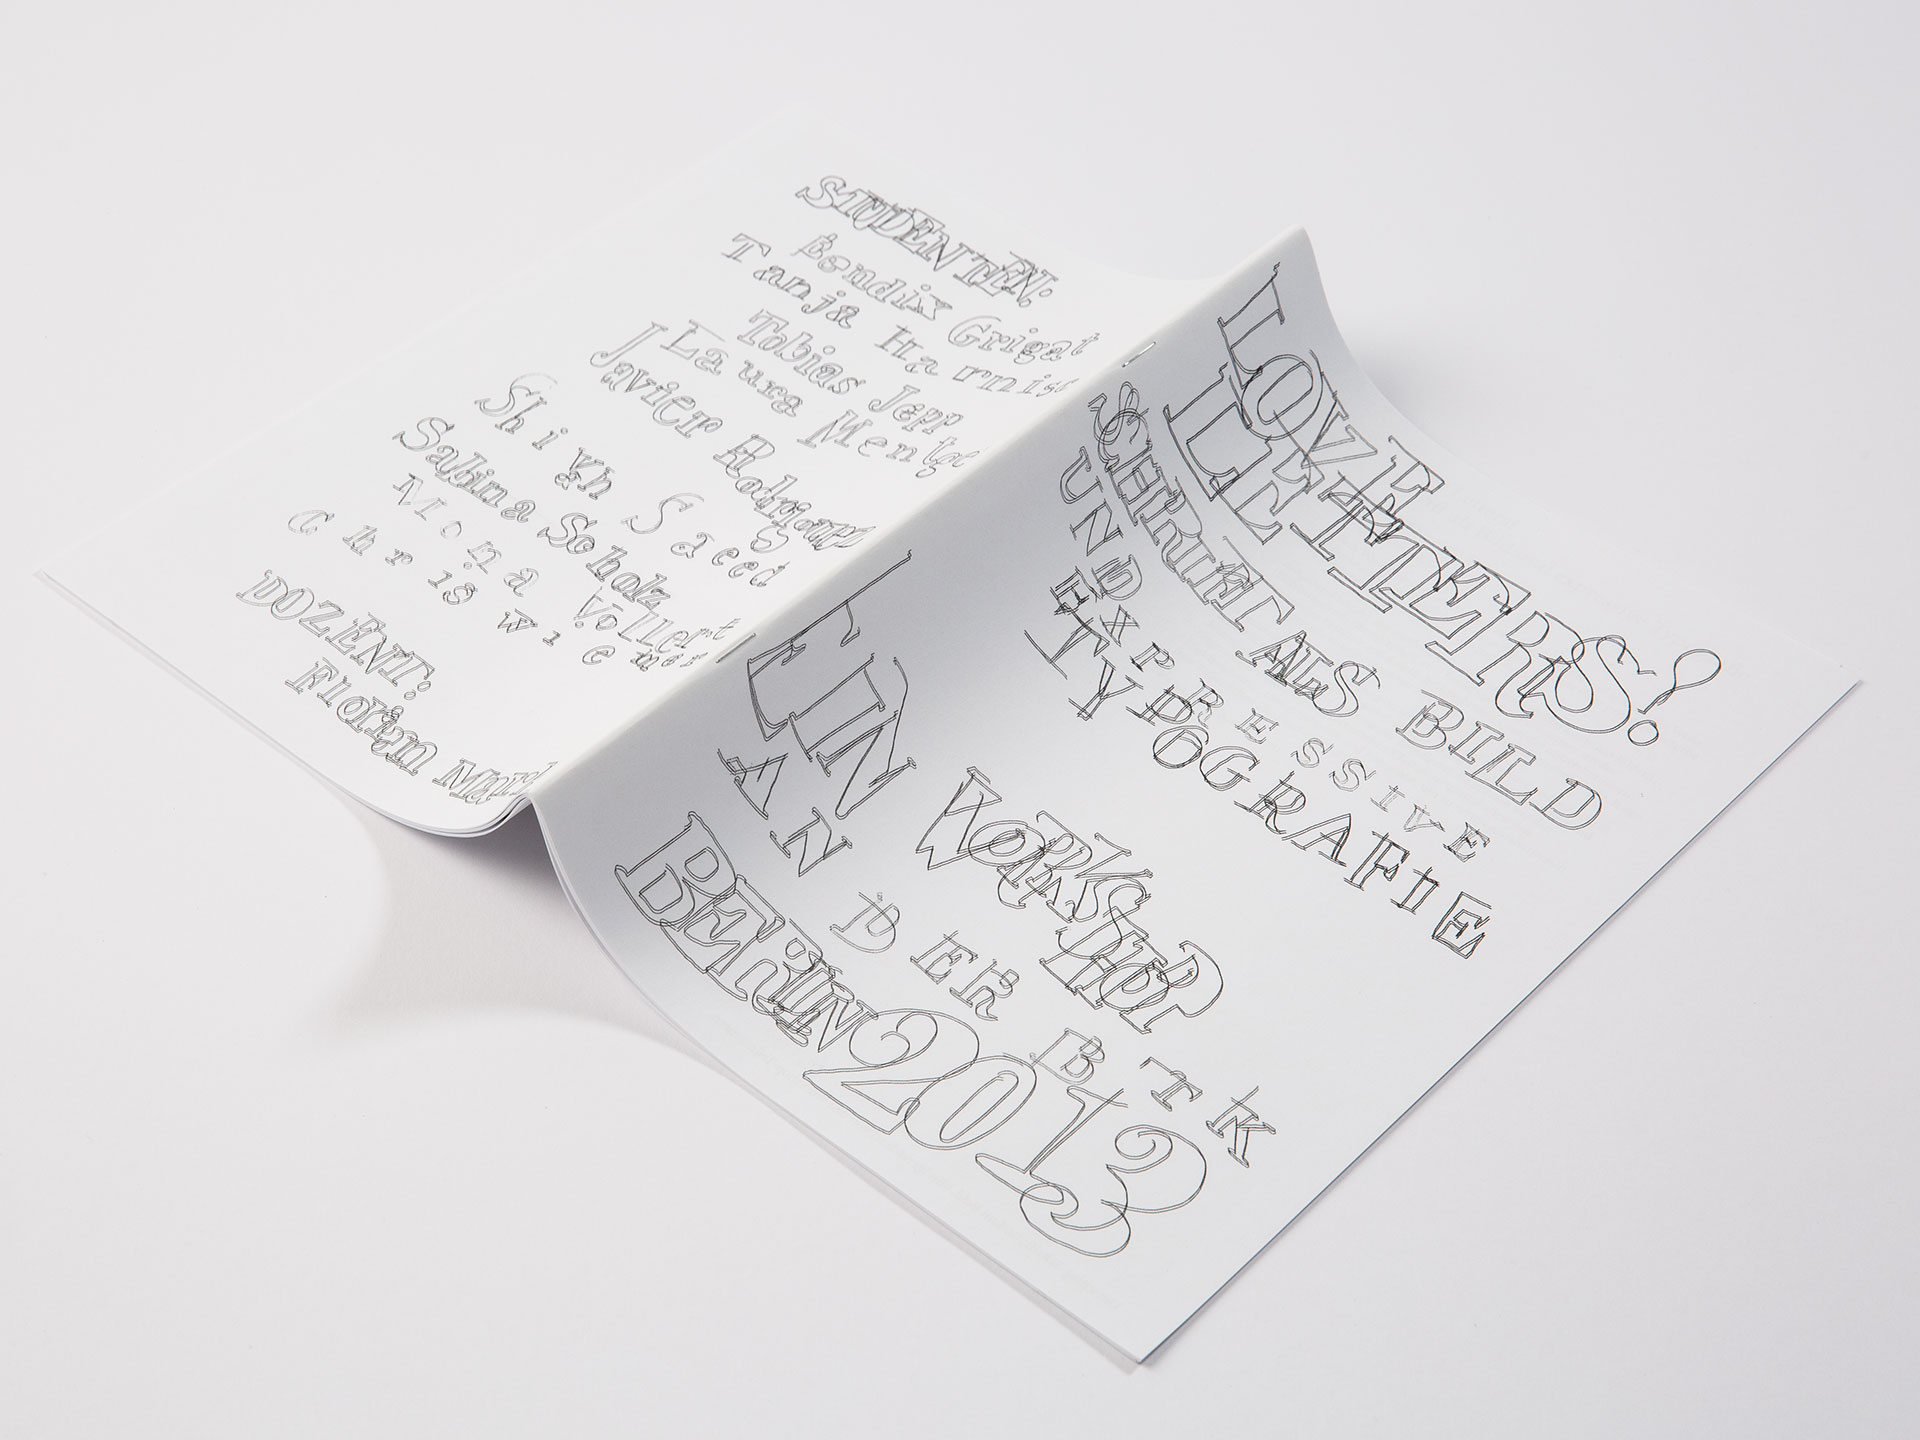 STUDENTEN:
Bendix Grigat
Tanja Harnisc
Tobias Jepp
Laura Mentgc
Javier Rodriguez
Shivh Saeed
Sabina Scholz
Mona Vollert
Chris Wiemer
DOZENT:
Florian
LOVE
LETTERS!
SCHRIFT ALS BILD
UND
EXPRESSIVE
TYPOGRAFIE
EIN WORKSHOP
AN DER BTK
BERLIN 2013